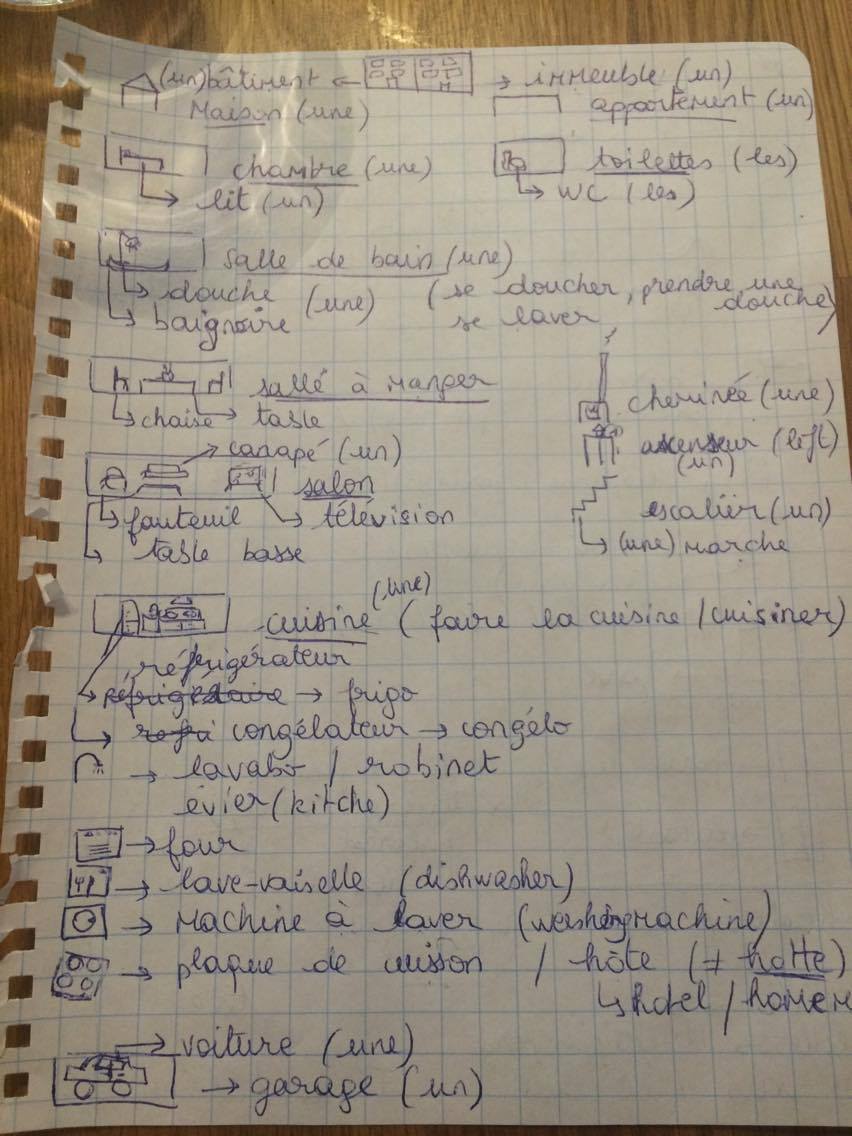 (un) bâtiment ← → immeuble (un)
Maison (une) appartement (un)
chambre (une) toilettes (les)
→ lit (un) → WC (les)
salle de bain (une)
→ douche (une) (se doucher, prendre une douche)
→ baignoire se laver,
sallé à manger
→ chaise → table
cheminée (une)
→ canapé (un) ascenseur (lift)
(un)
salon
→ fauteuil → télévision escalier (un)
→ table basse → (une) marche
(une)
cuisine (faire la cuisine / cuisiner)
réfrigérateur
→ → frigo
→ congélateur → congélo
→ lavabo / robinet
évier (kitche)
→ four
→ lave-vaiselle (dishwasher)
→ machine à laver (weshingmachine)
→ plaque de cuisson / hôte (≠ hotte)
↳ hotel /
→ voiture (une)
→ garage (un)